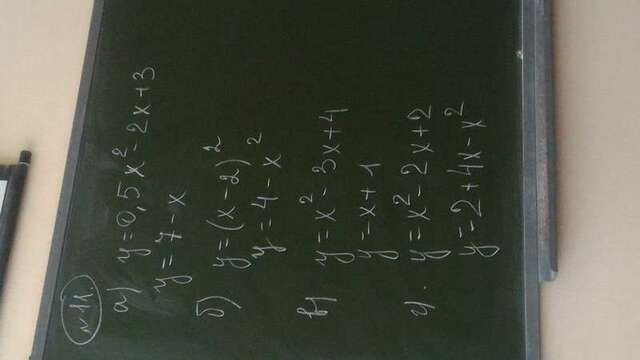 №11.
а) y=0,5x²-2x+3
y=7-x
б) y=(x-2)²
y=4-x²
в) y=x²-3x+4
y=x+1
г). y=x²-2x+2
y=2+4x-x²